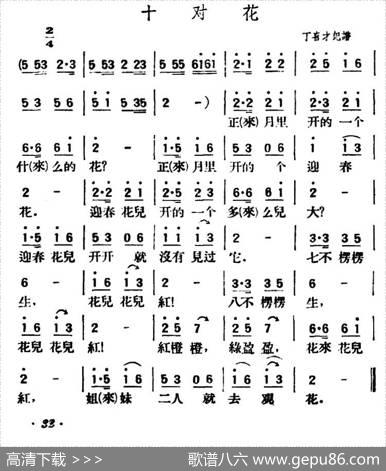 十对花
2/4
丁喜才記譜
(5 53 2·3 | 5 53 2 23 | 5 55 6161 | 2·1 2 2 | 2 5 1 6
5 3 5 6 | 5 1 5 35 | 2 -) | 2·2 2 1 | 2·3 2 1
正(來)月里 开的一个
6·6 6 1 | 2 - | 1·5 1 6 | 5 3 0 6 | 1 1 3
什(來)么的 花? 正(來)月里 开的 个 迎 春
2 - | 2·2 2 1 | 2·5 2 3 | 6·6 6 1 | 2 -
花. 迎春 花兒 开的一个 多(來)么兒 大?
1·5 1 6 | 5 3 0 6 | 1 1 1 3 | 2 - | 3·3 3 5
迎春 花兒 开开 就 沒有 見过 它. 七不 楞楞
6 - | 1 6 1 3 | 2 - | 3·3 3 5 | 6 -
生, 花兒 花兒 紅! 八不 楞楞 生,
1 6 1 3 | 2 - | 2 5 7 | 2 5 7 | 6·6 6 1
花兒 花兒 紅! 紅橙 橙, 綠盈 盈, 花來 花兒
2 - | 1·5 1 6 | 5 3 0 6 | 1 6 1 3 | 2 -
紅, 姐(來)妹 二人 就 去 观 花.
· 32 ·
高清下载 >>>
歌谱八六 www.gepu86.com